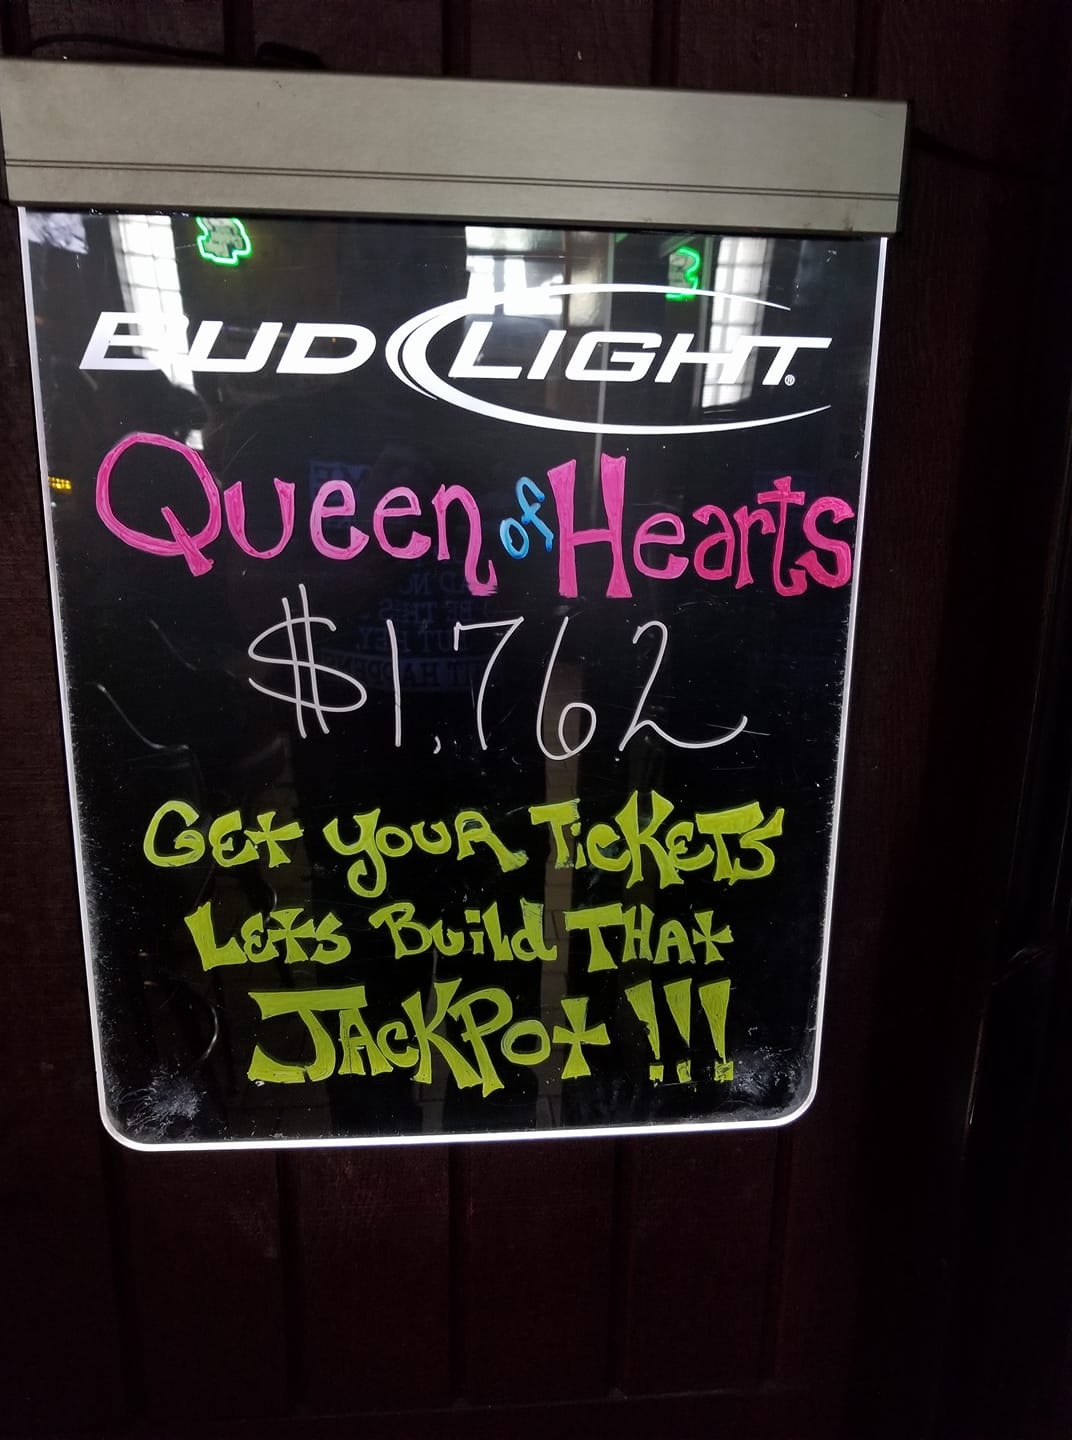 BUD LIGHT®
Queen of Hearts
$1,762
Get Your Tickets
Lets Build That
Jackpot!!!